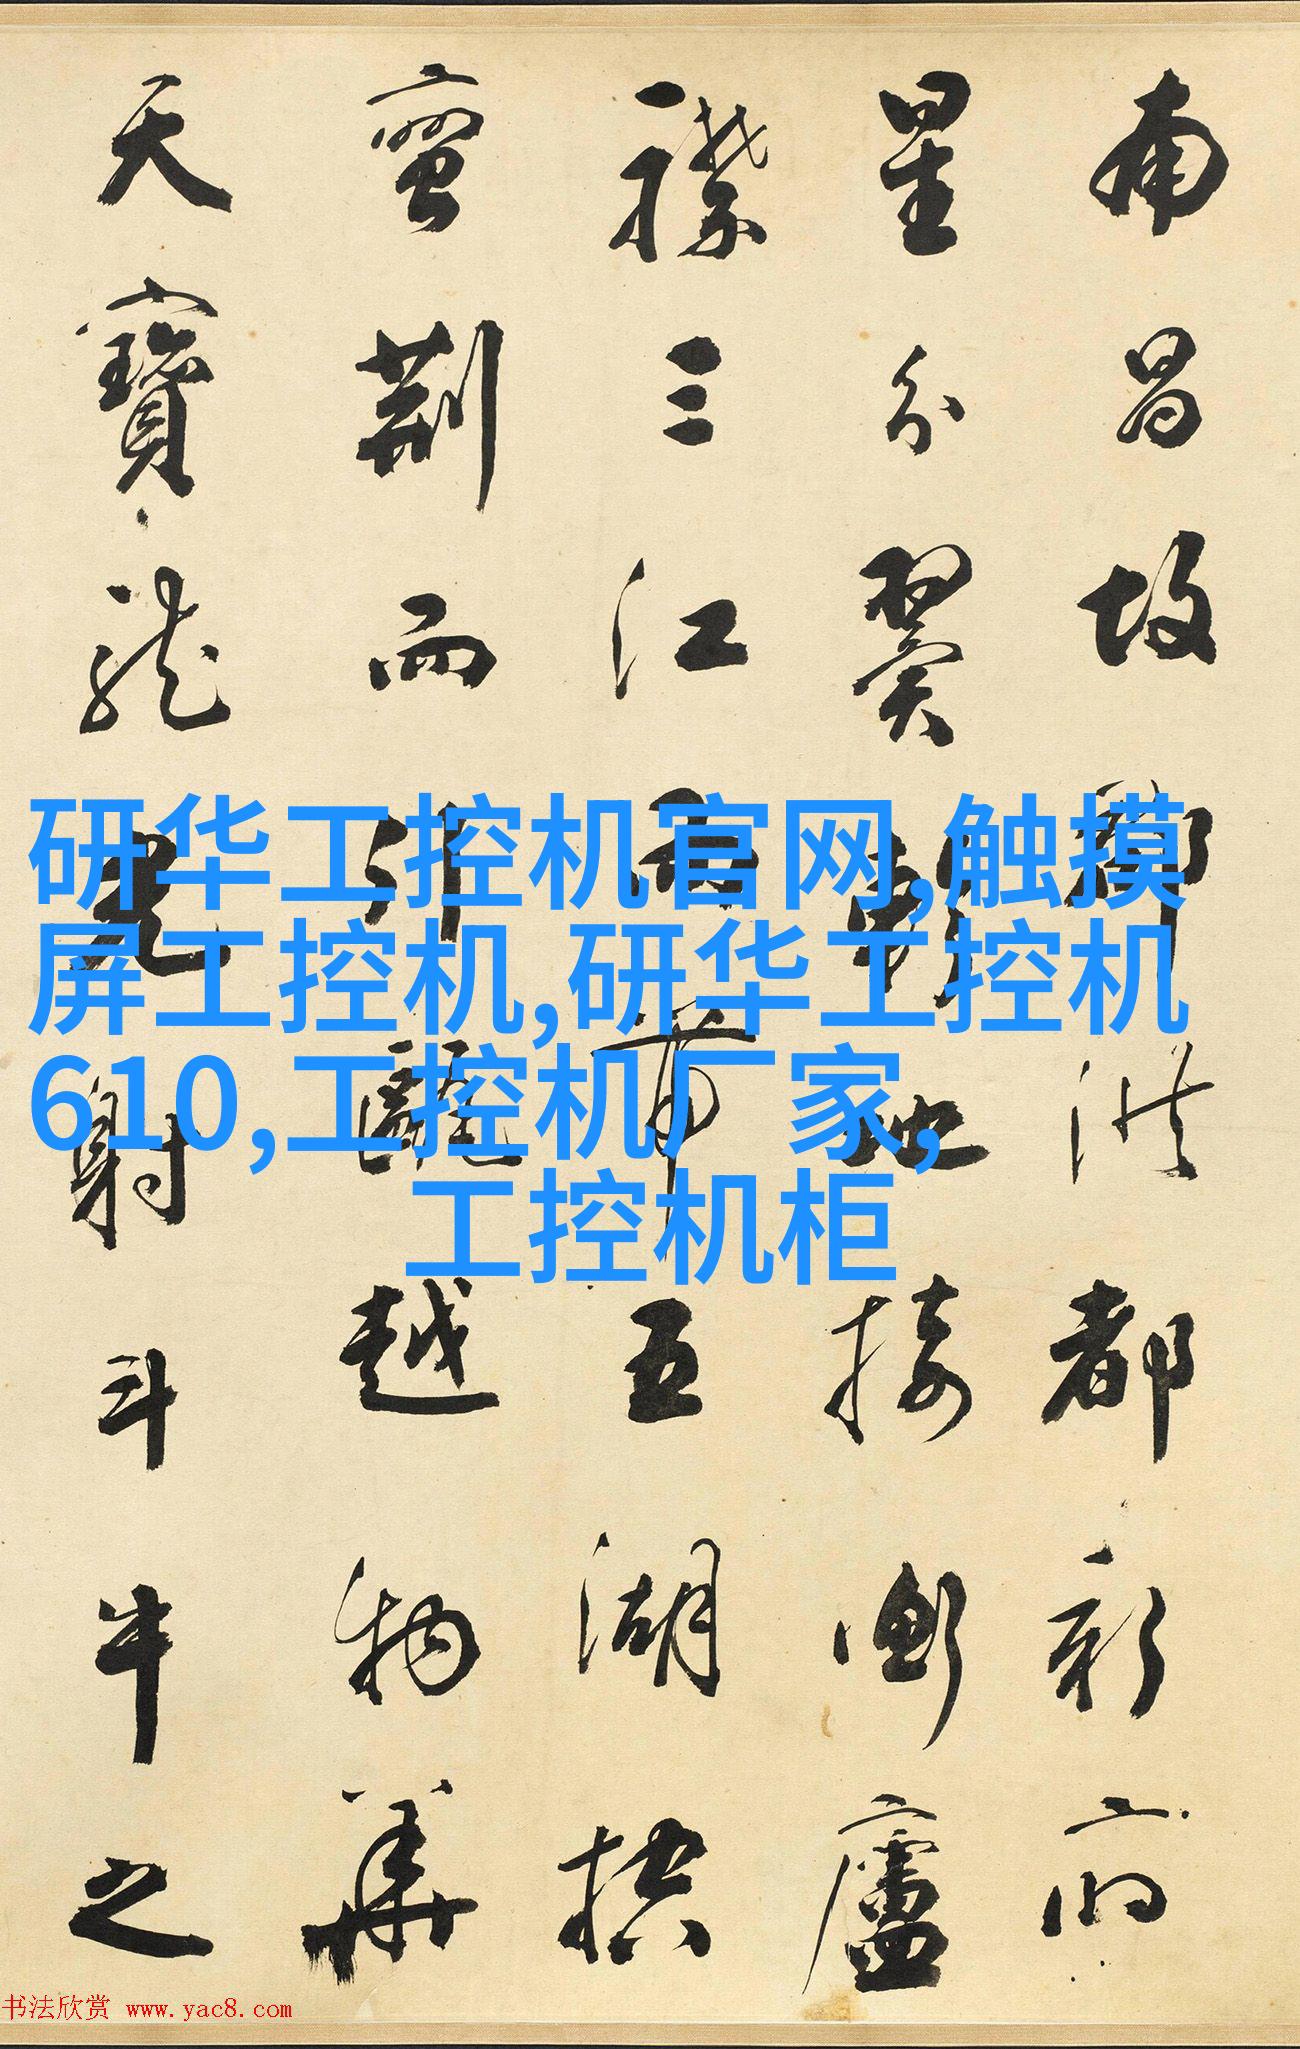 南昌故郡洪都新府
星分翼軫地接衡廬
襟三江而帶五湖控
蠻荊而引甌越物華
天寶龍光射斗牛之
研华工控机官网,触摸
屏工控机,研华工控机
610,工控机厂家,
工控机柜
书法欣赏 www.yac8.com